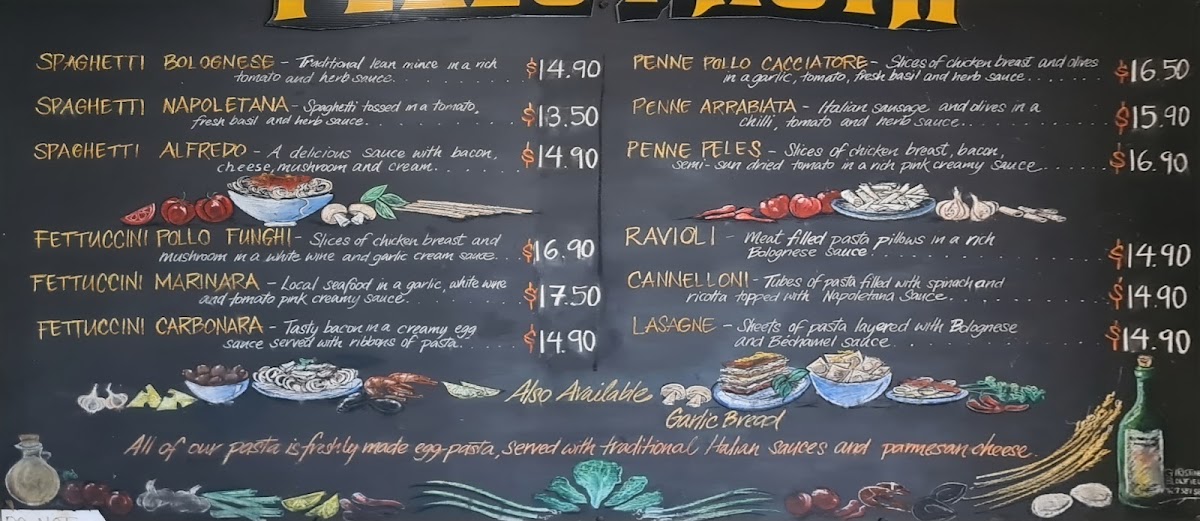 SPAGHETTI BOLOGNESE - Traditional lean mince in a rich
tomato and herb sauce. $14.90
SPAGHETTI NAPOLETANA - Spaghetti tossed in a tomato,
fresh basil and herb sauce. $13.50
SPAGHETTI ALFREDO - A delicious sauce with bacon,
cheese, mushroom and cream. $14.90
FETTUCCINI POLLO FUNGHI - Slices of chicken breast and
mushroom in a white wine and garlic cream sauce $16.90
FETTUCCINI MARINARA - Local seafood in a garlic, white wine
and tomato pink creamy sauce. $17.50
FETTUCCINI CARBONARA - Tasty bacon in a creamy egg
sauce served with ribbons of pasta. $14.90
PENNE POLLO CACCIATORE - Slices of chicken breast and olives
in a garlic, tomato, fresh basil and herb sauce $16.50
PENNE ARRABIATA - Italian sausage and olives in a
chilli, tomato and herb sauce. $15.90
PENNE PELES - Slices of chicken breast, bacon,
semi-sun dried tomato in a rich pink creamy sauce $16.90
RAVIOLI - Meat filled pasta pillows in a rich
Bolognese sauce $14.90
CANNELLONI - Tubes of pasta filled with spinach and
ricotta topped with Napoletana sauce. $14.90
LASAGNE - Sheets of pasta layered with Bolognese
and Béchamel sauce $14.90
Also Available
Garlic Bread
All of our pasta is freshly made egg-pasta, served with traditional Italian sauces and parmesan cheese.
DO NOT